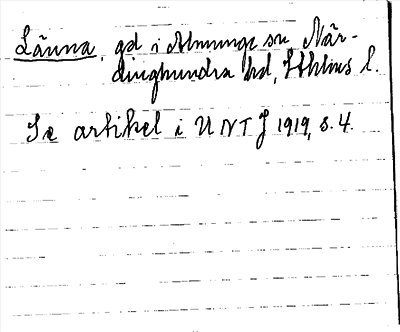 Länna, gd i Almunge sn När-
dinghundra hd, Sthlms l.
Se artikel i UNTJ 1919, s. 4.